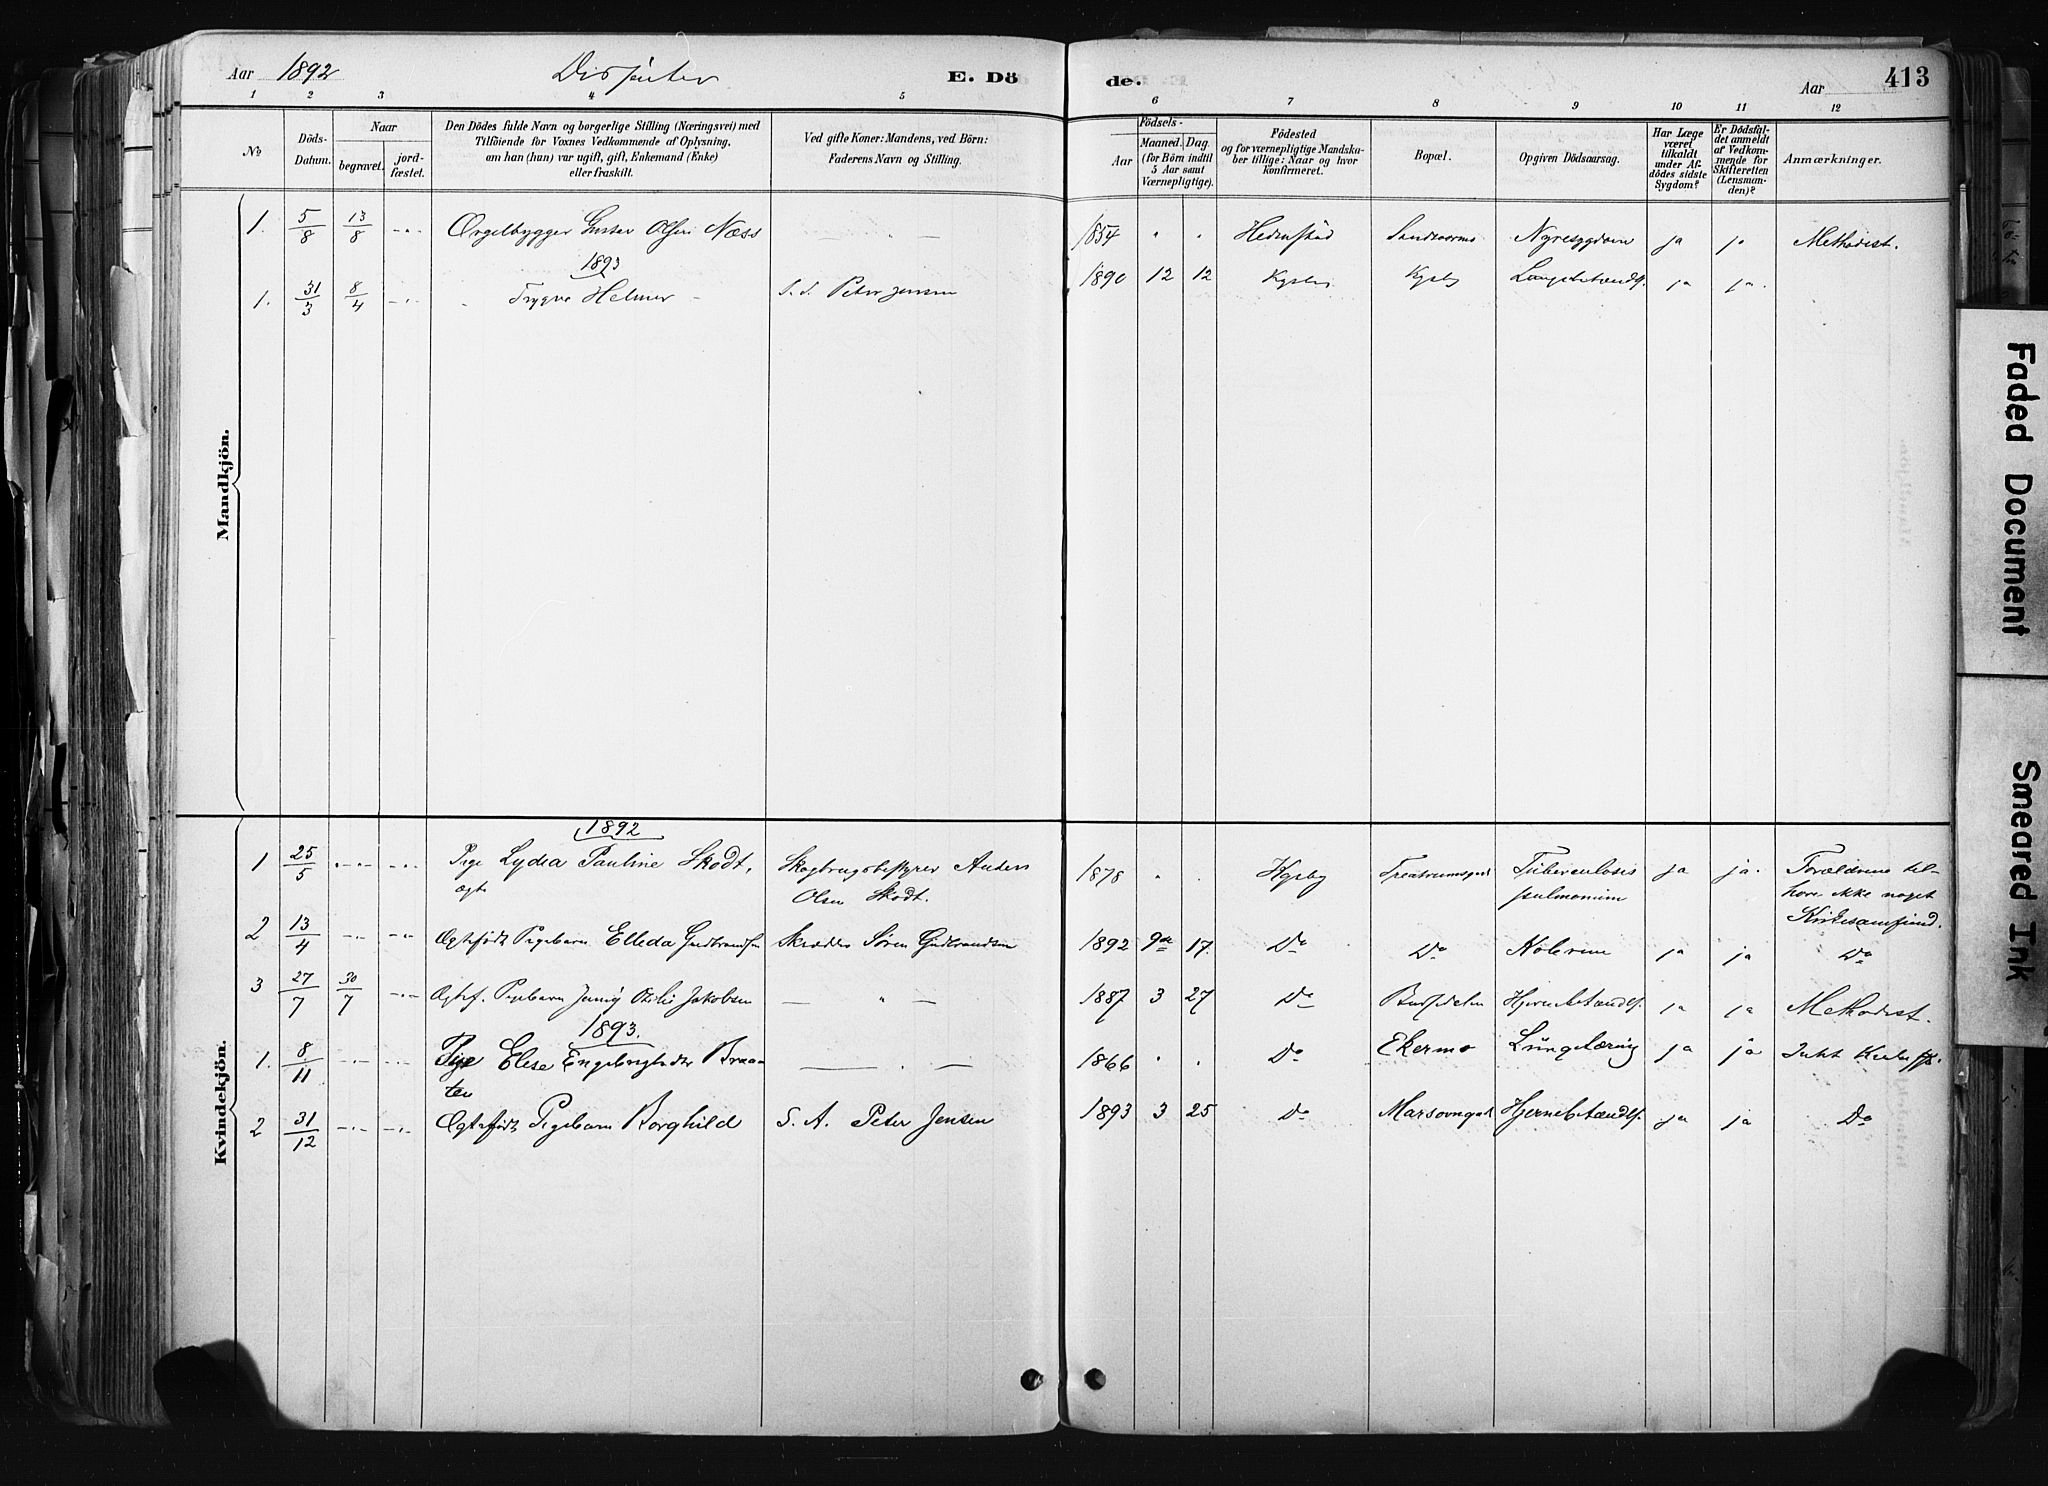 Aar 1892 Dissenter E. Döde. Aar 413
1 2 3 4 5 6 7 8 9 10 11 12
No
Döds-
Datum.
Naar
begravet.
jord-
fæstet.
Den Dödes fulde Navn og borgerlige Stilling (Næringsvei) med
Tilföiende for Voxnes Vedkommende af Oplysning,
om han (hun) var ugift, gift, Enkemand (Enke)
eller fraskilt.
Ved gifte Koner: Mandens, ved Börn:
Faderens Navn og Stilling.
Födsels-
Aar
Maaned. Dag
(for Börn indtil
5 Aar samt
Værnepligtige).
Födested
og for værnepligtige Mandska-
ber tillige: Naar og hvor
konfirmeret.
Bopæl.
Opgiven Dödsaarsag.
Har Læge
været
tilkaldt
under Af-
dödes sidste
Sygdom?
Er Dödsfal-
det anmeldt
af Vedkom-
mende for
Skifteretten
(Lensman-
den)?
Anmærkninger.
Mandkjön.
1. 5/8 13/8 -"- Orgelbygger Gustav Olsen Næss — " — 1854 " " Hedenstad Nyresygdom ja ja Methodist.
1893
1. 31/3 8/4 -"- " Trygve Helmer - S. S. Peter Jensen 1890 12 12 Kgsby Kgsby ja ja.
Kvindekjön.
1892
1 25/5 -"- -"- Pige Lydia Pauline Skodt, Skogbrugsbestyrer Anders 1878 " " Kgsby Tuberculosis ja ja. Forældrene til-
ægte Olsen Skodt. pulmonum hore ikke noget
Kirkesamfund.
2 13/4 -"- -"- Ægtefödt Pigebarn Elleda Gudbrandsen Skrædder Sören Gudbrandsen 1892 9de 17. Do Do Kolerine ja ja Do
3 27/7 30/7 -"- Ægtef. Pigebarn Jenny Otilie Jakobsen — " — 1887 3 27 Do Hjernebetændls. ja ja Methodist.
1893.
1. 8/11 -"- -"- Pige Elise Engebregtsdtr Braa- — " — 1866 " " Do Ekermo Lungetæring ja ja
ten
2 31/12 -"- -"- Ægtefödt Pigebarn Borghild S. A. Peter Jensen 1893 3 25 Do Hjernebetændls. ja ja Do
Faded Document
Smeared Ink